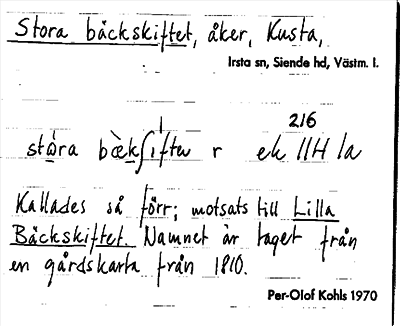 Stora bäckskiftet, åker, Kusta,
Irsta sn, Siende hd, Västm. l.
216
r ek 11H 1a
Kallades så förr; motsats till Lilla
Bäckskiftet. Namnet är taget från
en gårdskarta från 1810.
Per-Olof Kohls 1970